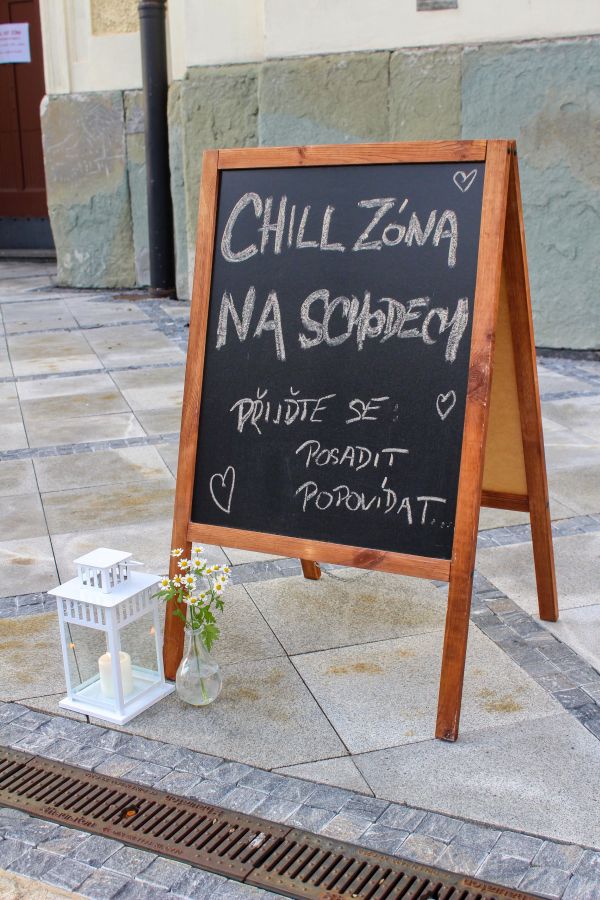 CHILL ZÓNA
NA SCHODECH
PŘIJĎTE SE:
POSADIT
POPOVÍDAT...